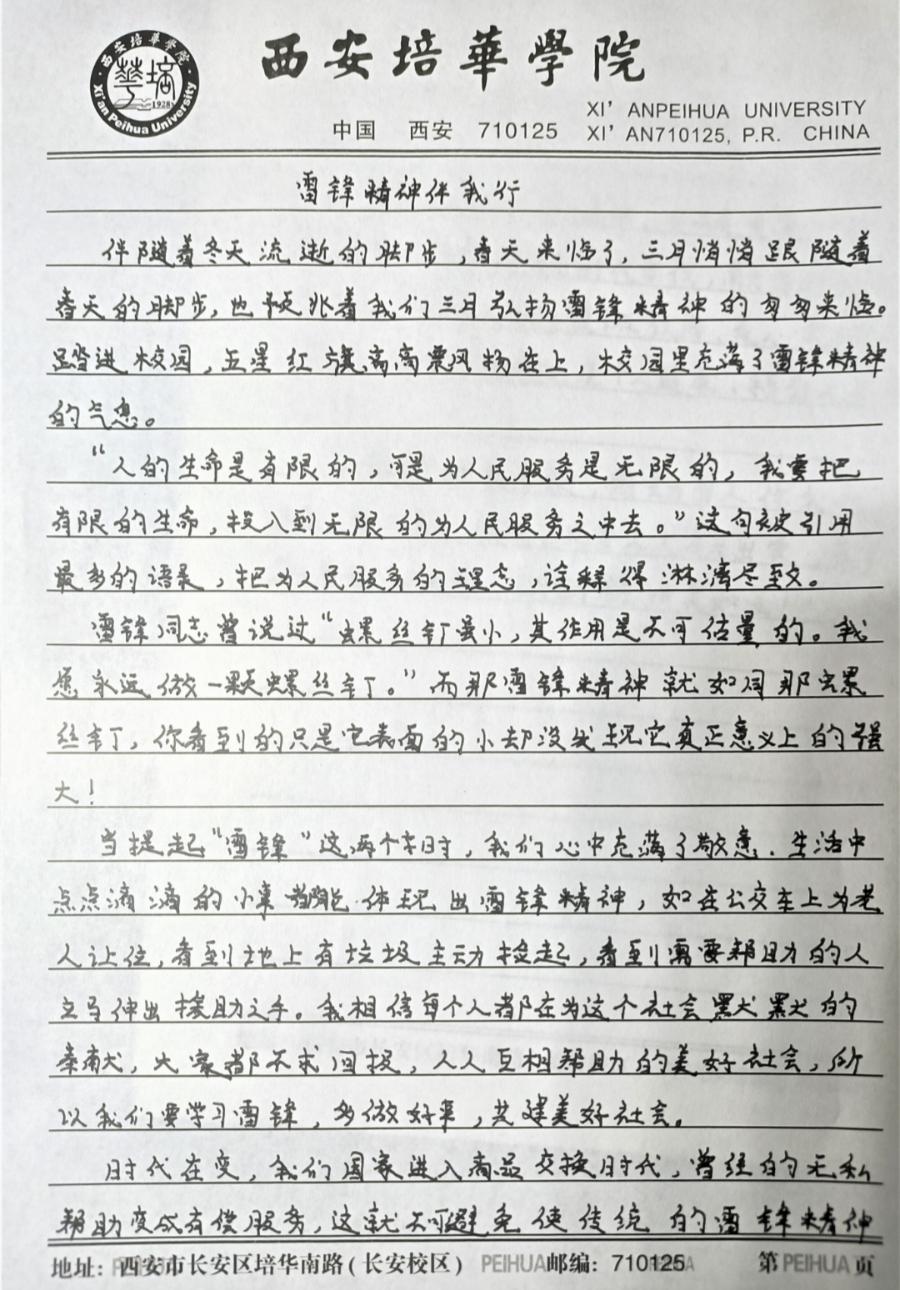 西安培華學院
西安培华学院
華培
1928
Xi'an Peihua University
XI' ANPEIHUA UNIVERSITY
中国 西安 710125 XI' AN710125, P.R. CHINA
雷锋精神伴我行
伴随着冬天流逝的脚步，春天来临了，三月悄悄跟随着
春天的脚步，也预兆着我们三月弘扬雷锋精神的匆匆来临。
踏进校园，五星红旗高高飘扬在上，校园里充满了雷锋精神
的气息。
“人的生命是有限的，可是为人民服务是无限的，我要把
有限的生命，投入到无限的为人民服务之中去。”这句被引用
最多的语录，把为人民服务的理念，诠释得淋漓尽致。
雷锋同志曾说过“螺丝钉虽小，其作用是不可估量的。我
愿永远做一颗螺丝钉。”而那雷锋精神就如同那螺
丝钉，你看到的只是它表面的小却没发现它真正意义上的强
大！
当提起“雷锋”这两个字时，我们心中充满了敬意．生活中
点点滴滴的小事都能体现出雷锋精神，如在公交车上为老
人让位，看到地上有垃圾主动捡起，看到需要帮助的人
立马伸出援助之手。我相信每个人都在为这个社会默默的
奉献，大家都不求回报，人人互相帮助的美好社会，所
以我们要学习雷锋，多做好事，共建美好社会。
时代在变，我们国家进入商品交换时代，曾经的无私
帮助变成有偿服务，这就不可避免使传统的雷锋精神
地址：西安市长安区培华南路（长安校区） PEIHUA 邮编：710125 第 PEIHUA 页